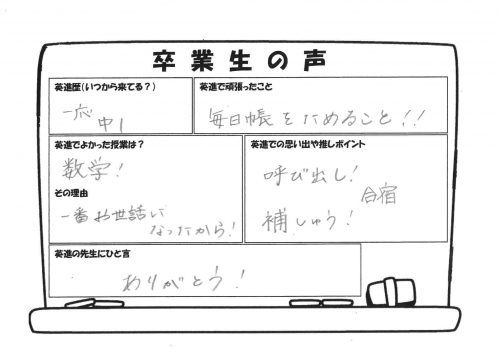 卒業生の声
英進歴(いつから来てる?)
一応
中1
英進で頑張ったこと
毎日帳をためること!!
英進でよかった授業は?
数学!
その理由
一番お世話に
なったから!
英進での思い出や推しポイント
呼び出し!
合宿
補しゅう!
英進の先生にひと言
ありがとう!